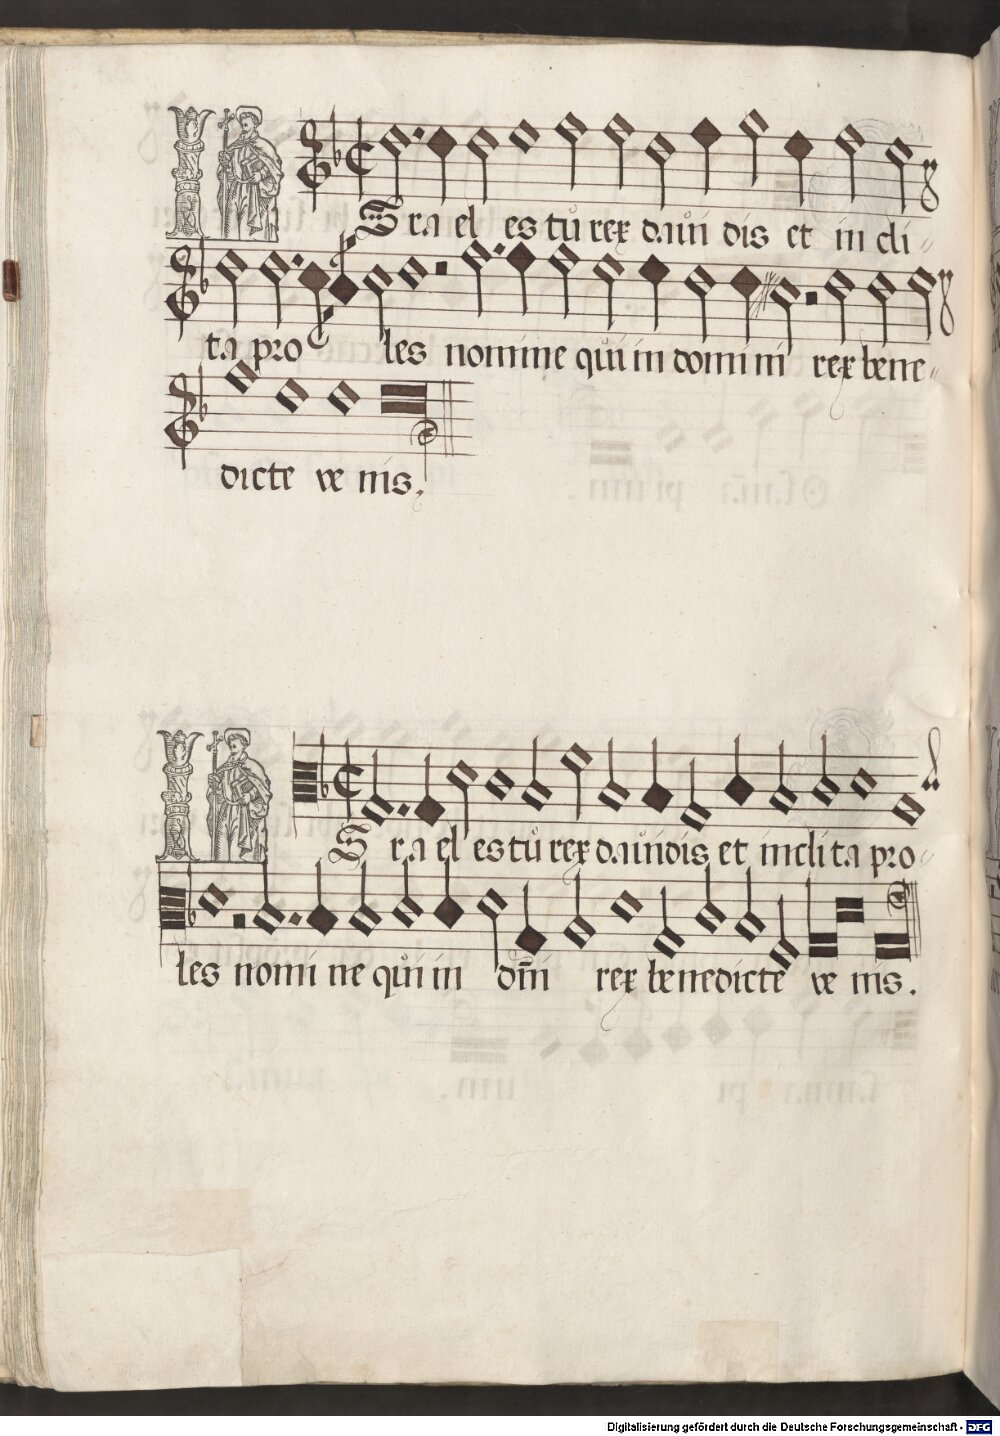 ISrael es tů rex dauidis et in cli-
ta pro les nomine qůi in domini rex bene-
dicte ve nis.
ISrael es tů rex dauidis et inclita pro-
les nomi ne qůi in dñi rex benedicte ve nis.
Digitalisierung gefördert durch die Deutsche Forschungsgemeinschaft - DFG